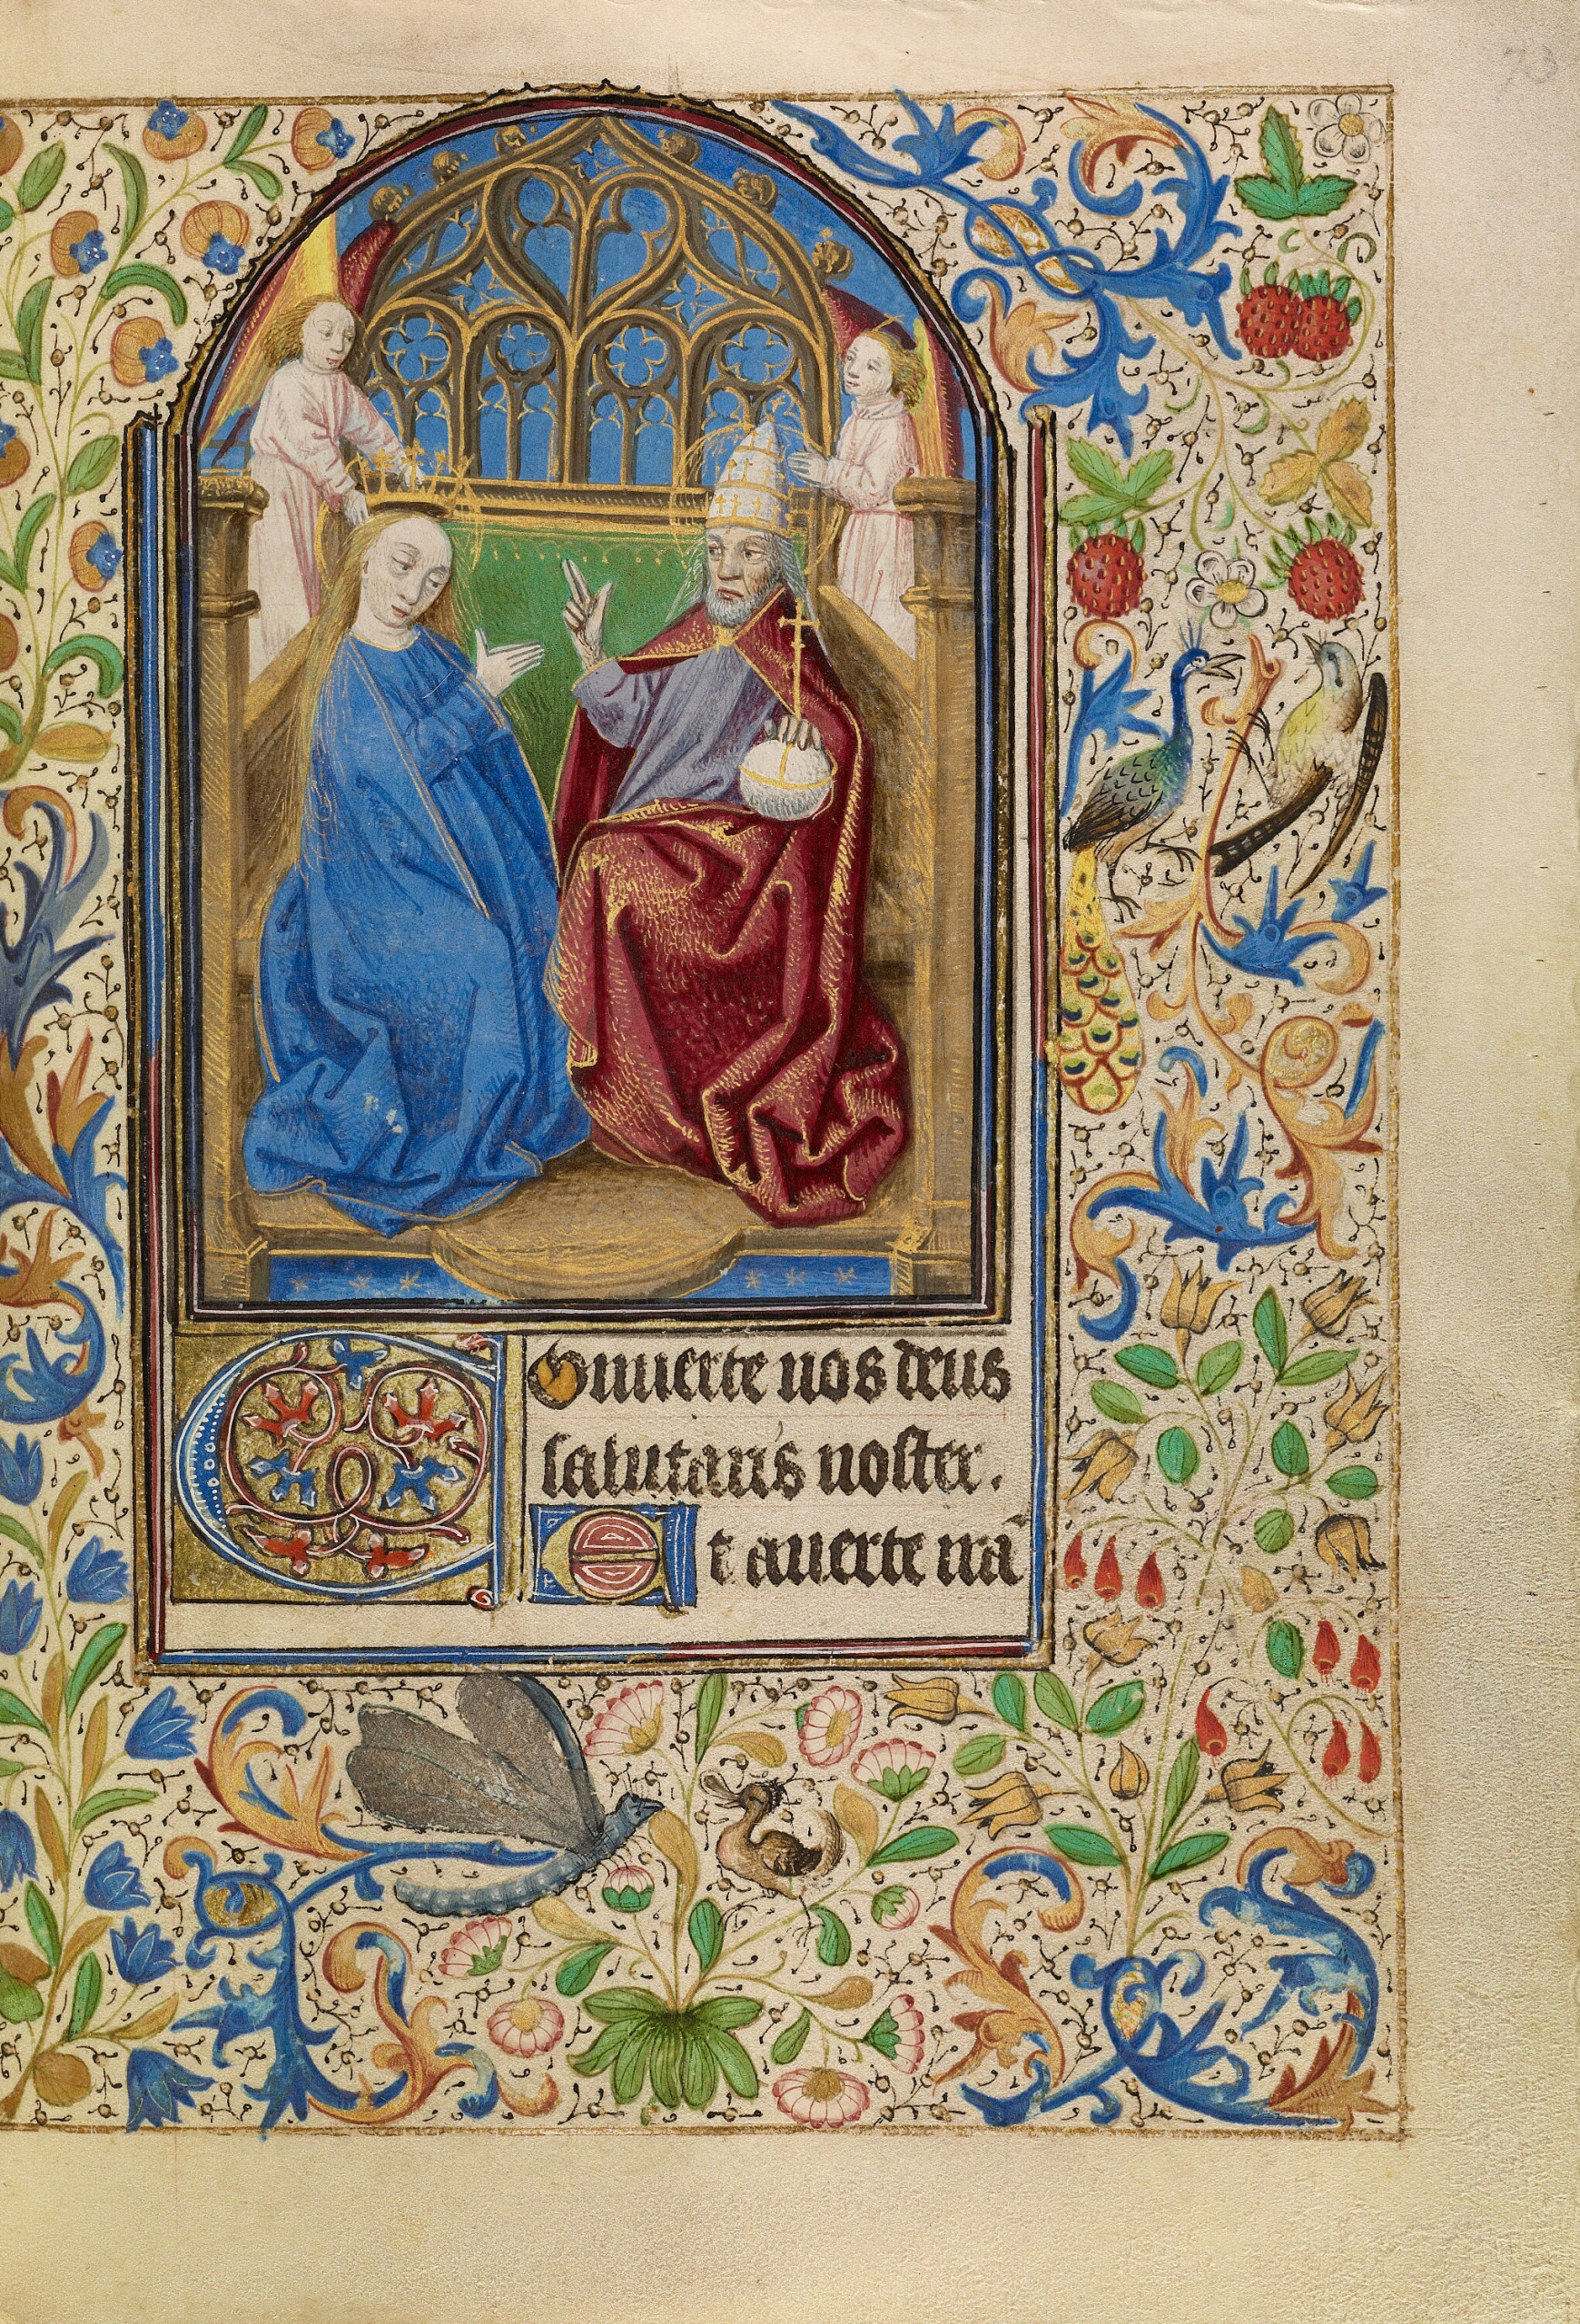 Conuerte nos deus
salutaris noster.
Et auerte irā